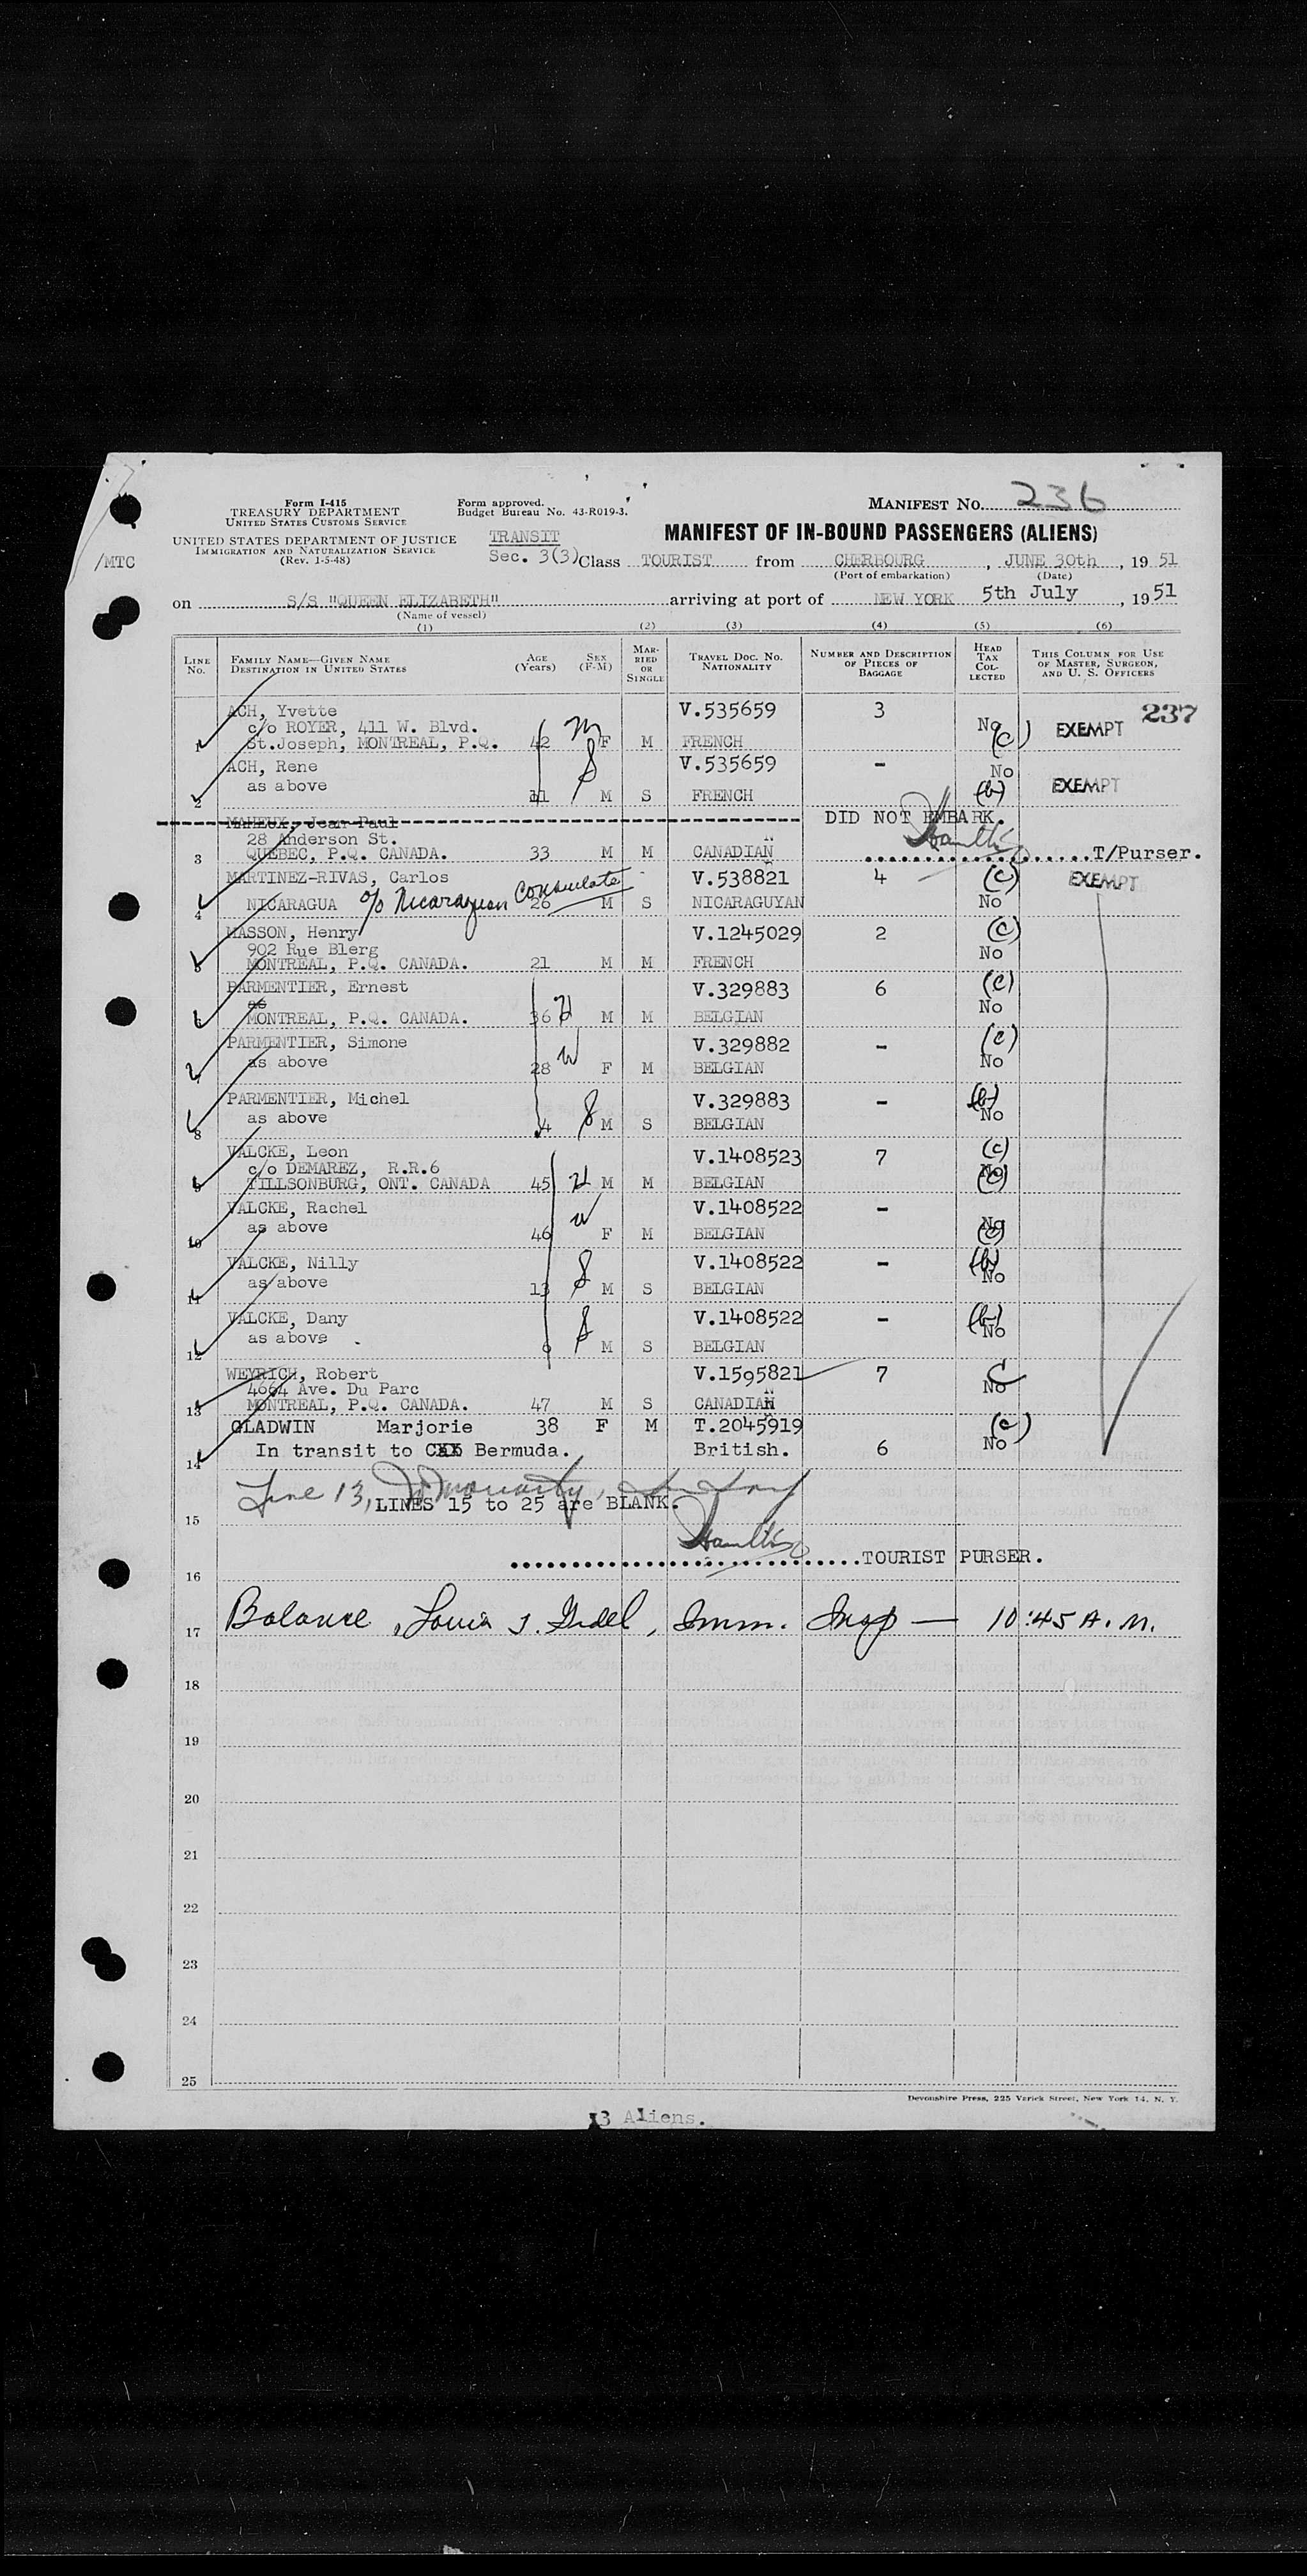 Form I-415
TREASURY DEPARTMENT
UNITED STATES CUSTOMS SERVICE
UNITED STATES DEPARTMENT OF JUSTICE
IMMIGRATION AND NATURALIZATION SERVICE
(Rev. 1-5-48)
Form approved.
Budget Bureau No. 43-R019-3.
MANIFEST No. 236
MANIFEST OF IN-BOUND PASSENGERS (ALIENS)
/MTC
TRANSIT
Sec. 3(3) Class TOURIST from CHERBOURG, JUNE 30th, 19 51
(Port of embarkation) (Date)
on S/S "QUEEN ELIZABETH" arriving at port of NEW YORK 5th July, 1951
(Name of vessel)
(1) (2) (3) (4) (5) (6)
LINE No. FAMILY NAME—GIVEN NAME DESTINATION IN UNITED STATES AGE (Years) SEX (F-M) MARRIED OR SINGLE TRAVEL DOC. NO. NATIONALITY NUMBER AND DESCRIPTION OF PIECES OF BAGGAGE HEAD TAX COLLECTED THIS COLUMN FOR USE OF MASTER, SURGEON, AND U. S. OFFICERS
237
ACH, Yvette V.535659 3
c/o ROYER, 411 W. Blvd. No EXEMPT
1 St.Joseph, MONTREAL, P.Q. 42 F M FRENCH (c)
ACH, Rene V.535659 - No
as above EXEMPT
2 11 M S FRENCH (b)
MAHEUX, Jean Paul DID NOT EMBARK.
28 Anderson St.
3 QUEBEC, P.Q. CANADA. 33 M M CANADIAN T/Purser.
MARTINEZ-RIVAS, Carlos V.538821 4 (c) EXEMPT
4 NICARAGUA c/o Nicaraguan Consulate 26 M S NICARAGUYAN No
MASSON, Henry V.1245029 2 (c)
902 Rue Blerg No
5 MONTREAL, P.Q. CANADA. 21 M M FRENCH
PARMENTIER, Ernest V.329883 6 (c)
as No
6 MONTREAL, P.Q. CANADA. 36 M M BELGIAN
PARMENTIER, Simone V.329882 - (c)
as above No
7 28 F M BELGIAN
PARMENTIER, Michel V.329883 - (b)
as above No
8 4 M S BELGIAN
VALCKE, Leon V.1408523 7 (c)
c/o DEMAREZ, R.R.6 No
9 TILLSONBURG, ONT. CANADA 45 M M BELGIAN (c)
VALCKE, Rachel V.1408522 -
as above No
10 46 F M BELGIAN (c)
VALCKE, Nilly V.1408522 - (b)
as above No
11 13 M S BELGIAN
VALCKE, Dany V.1408522 - (b)
as above No
12 9 M S BELGIAN
WEYRICH, Robert V.1595821 7 C
4664 Ave. Du Parc No
13 MONTREAL, P.Q. CANADA. 47 M S CANADIAN
GLADWIN Marjorie 38 F M T.2045919 (c)
14 In transit to Bermuda. British. 6 No
LINES 15 to 25 are BLANK.
15
TOURIST PURSER.
16
17 Balance, Louis J. Imm. Insp — 10:45 A.M.
18
19
20
21
22
23
24
25
Devonshire Press, 225 Varick Street, New York 14, N. Y.
13 Aliens.